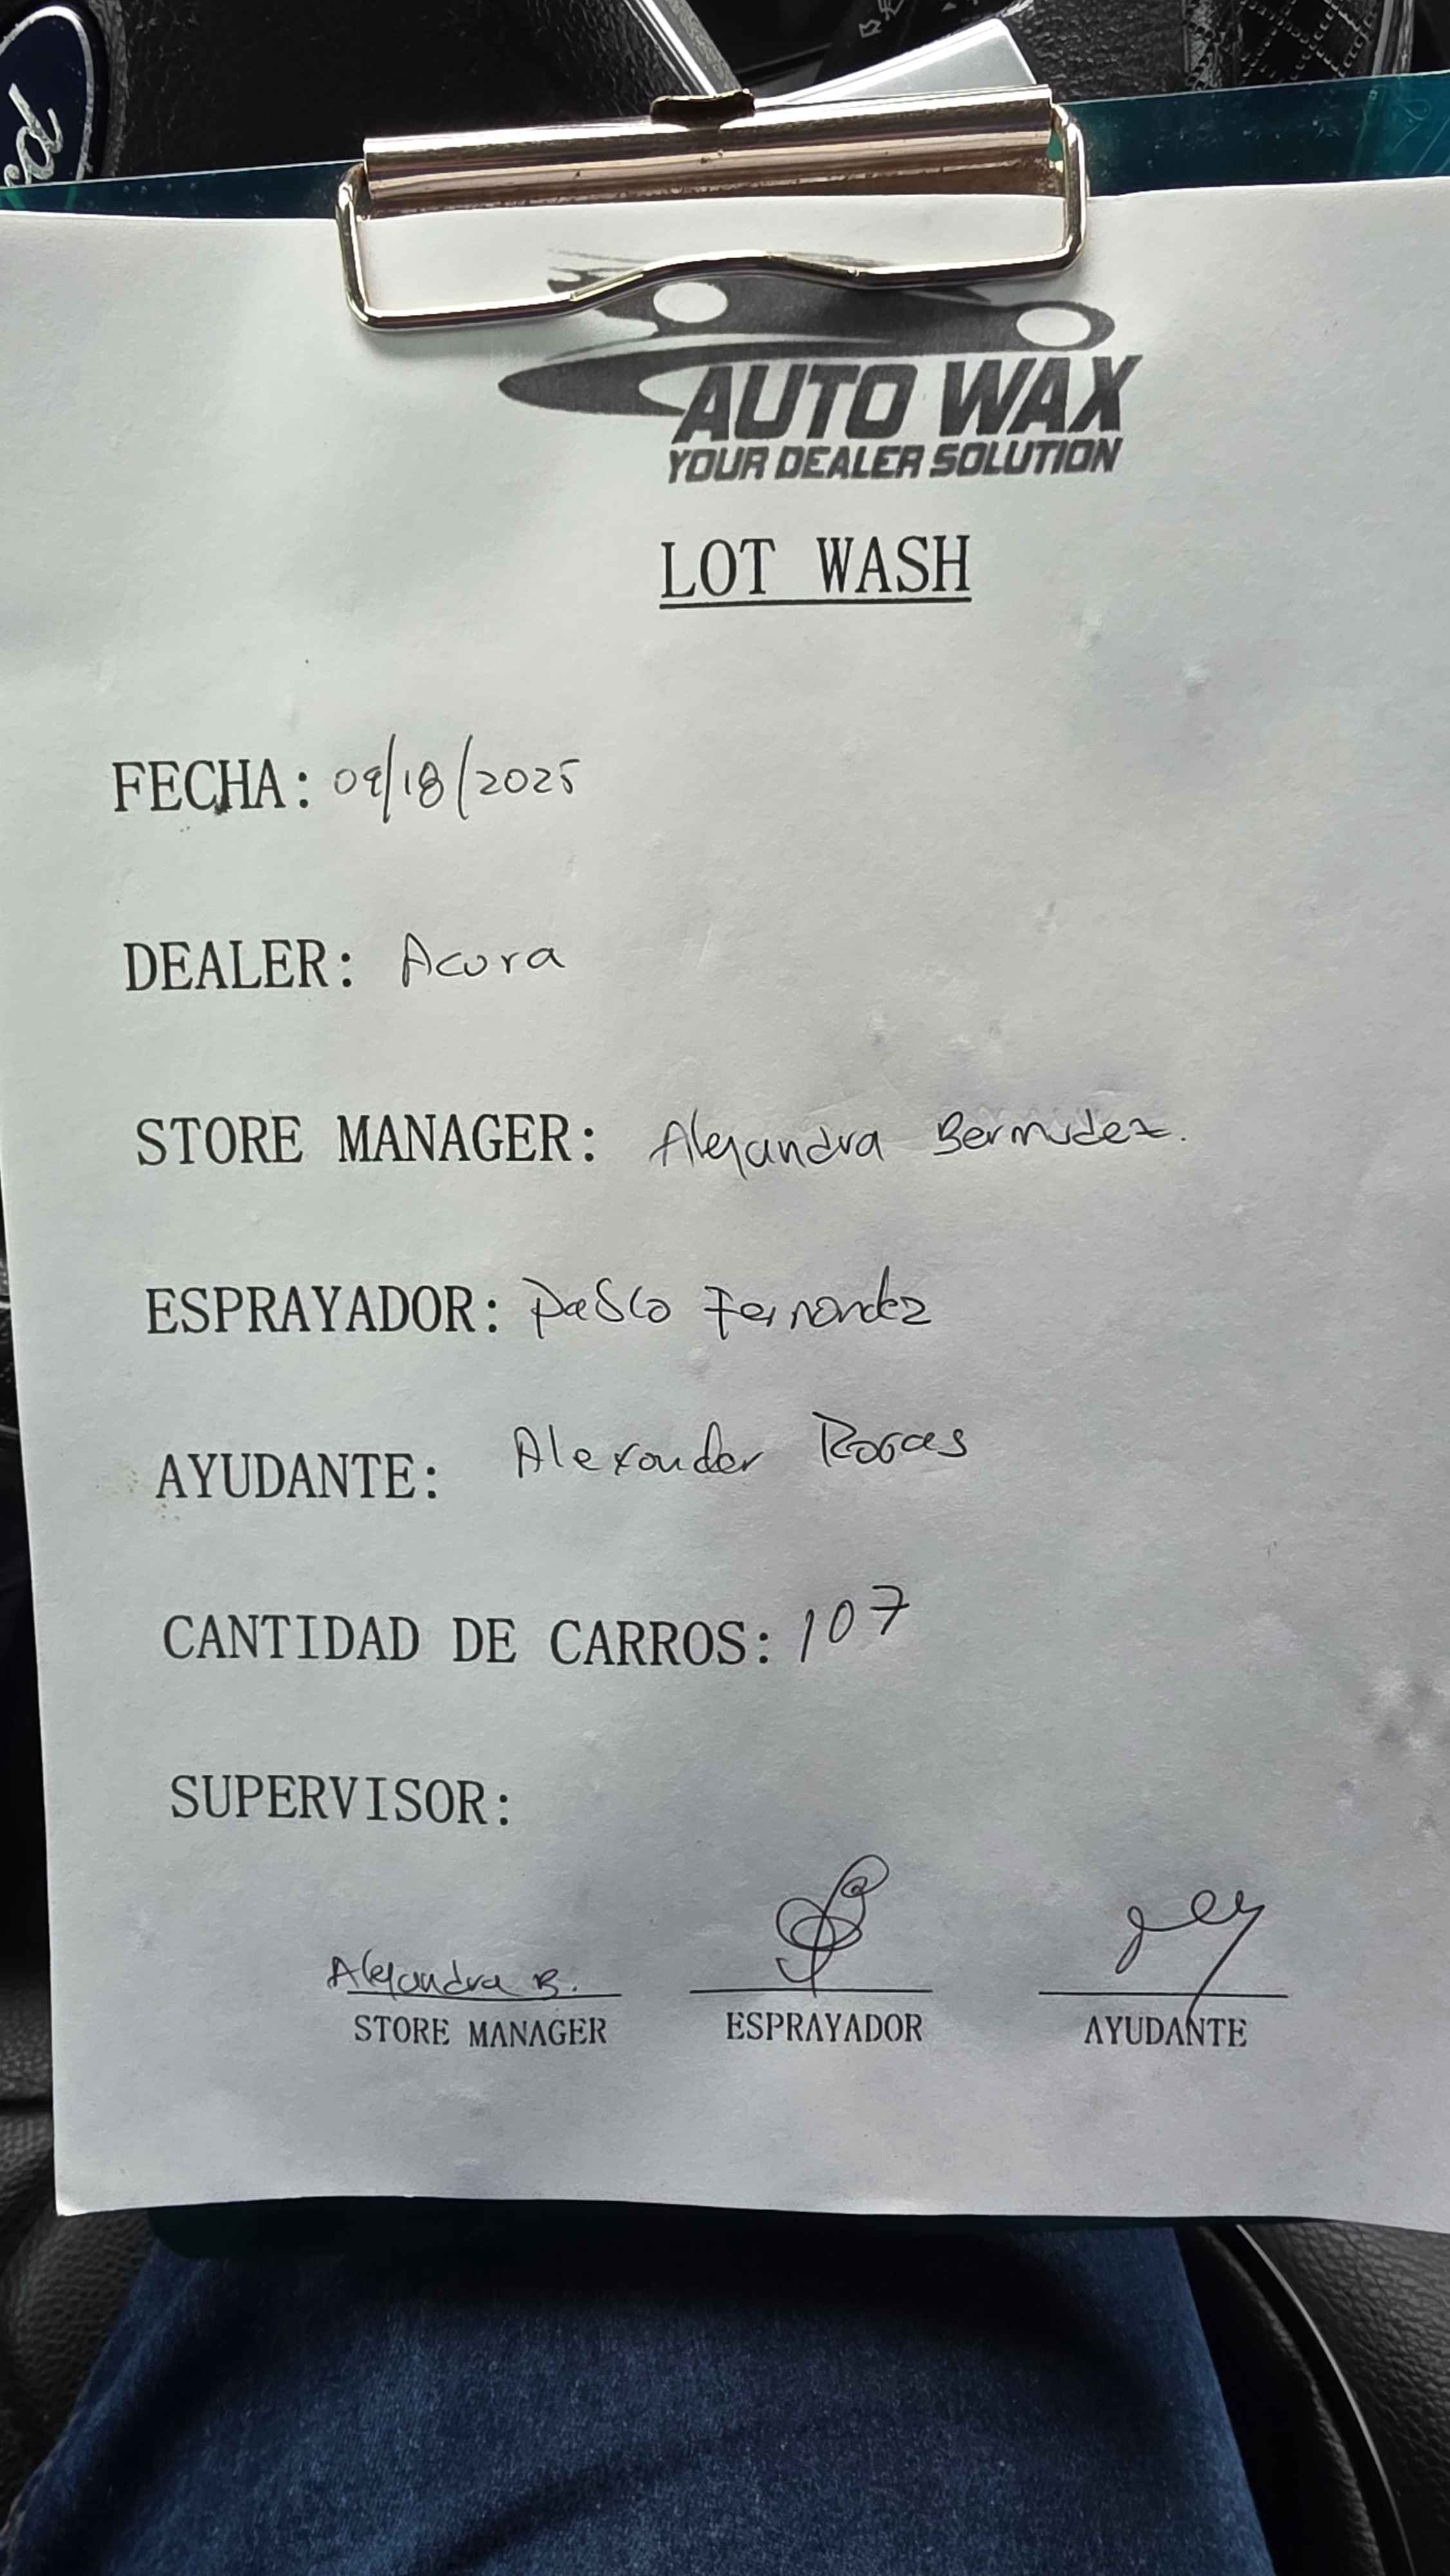 AUTO WAX
YOUR DEALER SOLUTION
LOT WASH
FECHA: 09/18/2025
DEALER: Acura
STORE MANAGER: Alejandra Bermudez.
ESPRAYADOR: Pablo Fernandez
AYUDANTE: Alexander
CANTIDAD DE CARROS: 107
SUPERVISOR:
Alejandra B.
STORE MANAGER ESPRAYADOR AYUDANTE